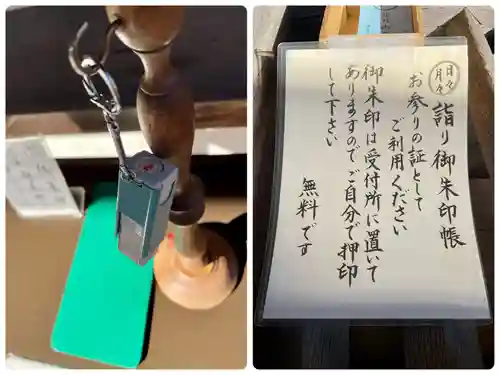 日々
月々
詣り御朱印帳
お参りの証として
ご利用ください
御朱印は受付所に置いて
ありますのでご自分で押印
して下さい
無料です